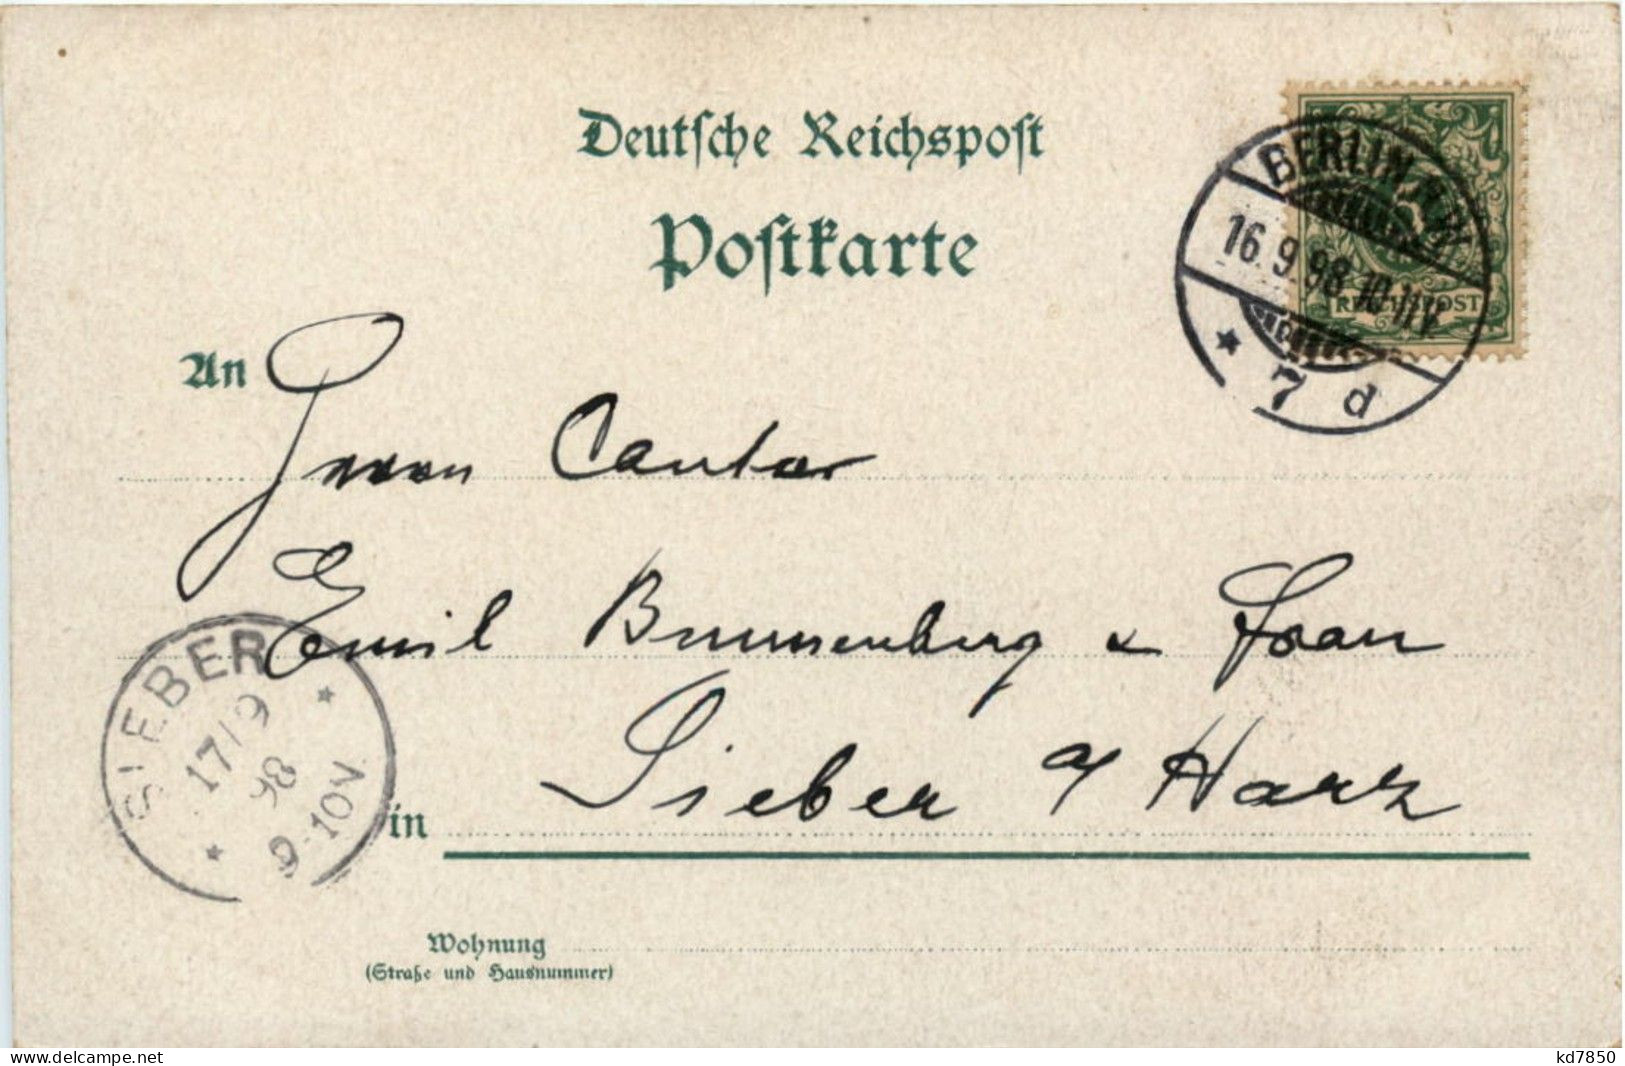 Deutsche Reichspost
Postkarte
BERLIN, N.W.
16.9.98 10-11V
* 7 d
REICHSPOST
An Herrn Cantor
Emil Brunnenberg & Frau
SIEBER
17/9
98
9-10V
* *
in Sieber a/ Harz
Wohnung
(Straße und Hausnummer)
www.delcampe.net
kd7850